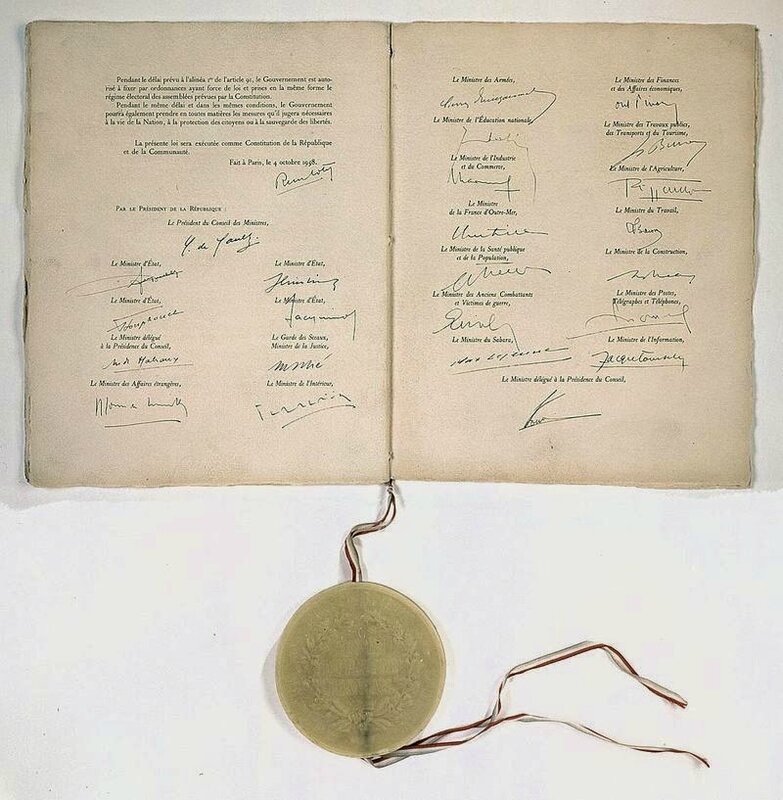 Pendant le délai prévu à l'alinéa 1er de l'article 91, le Gouvernement est auto-
risé à fixer par ordonnances ayant force de loi et prises en la même forme le
régime électoral des assemblées prévues par la Constitution.
Pendant le même délai et dans les mêmes conditions, le Gouvernement
pourra également prendre en toutes matières les mesures qu'il jugera nécessaires
à la vie de la Nation, à la protection des citoyens ou à la sauvegarde des libertés.
La présente loi sera exécutée comme Constitution de la République
et de la Communauté.
Fait à Paris, le 4 octobre 1958.
Par le Président de la République :
Le Président du Conseil des Ministres,
C. de Gaulle
Le Ministre d'État,
Le Ministre d'État,
Le Ministre d'État,
Le Ministre d'État,
Jacquinot
Le Ministre délégué
à la Présidence du Conseil,
Le Garde des Sceaux,
Ministre de la Justice,
Le Ministre des Affaires étrangères,
Le Ministre de l'Intérieur,
Le Ministre des Armées,
Le Ministre des Finances
et des Affaires économiques,
Le Ministre de l'Éducation nationale,
Le Ministre des Travaux publics,
des Transports et du Tourisme,
Le Ministre de l'Industrie
et du Commerce,
Le Ministre de l'Agriculture,
Le Ministre
de la France d'Outre-Mer,
Le Ministre du Travail,
Le Ministre de la Santé publique
et de la Population,
Le Ministre de la Construction,
Le Ministre des Anciens Combattants
et Victimes de guerre,
Le Ministre des Postes,
Télégraphes et Téléphones,
Le Ministre du Sahara,
Le Ministre de l'Information,
Le Ministre délégué à la Présidence du Conseil,